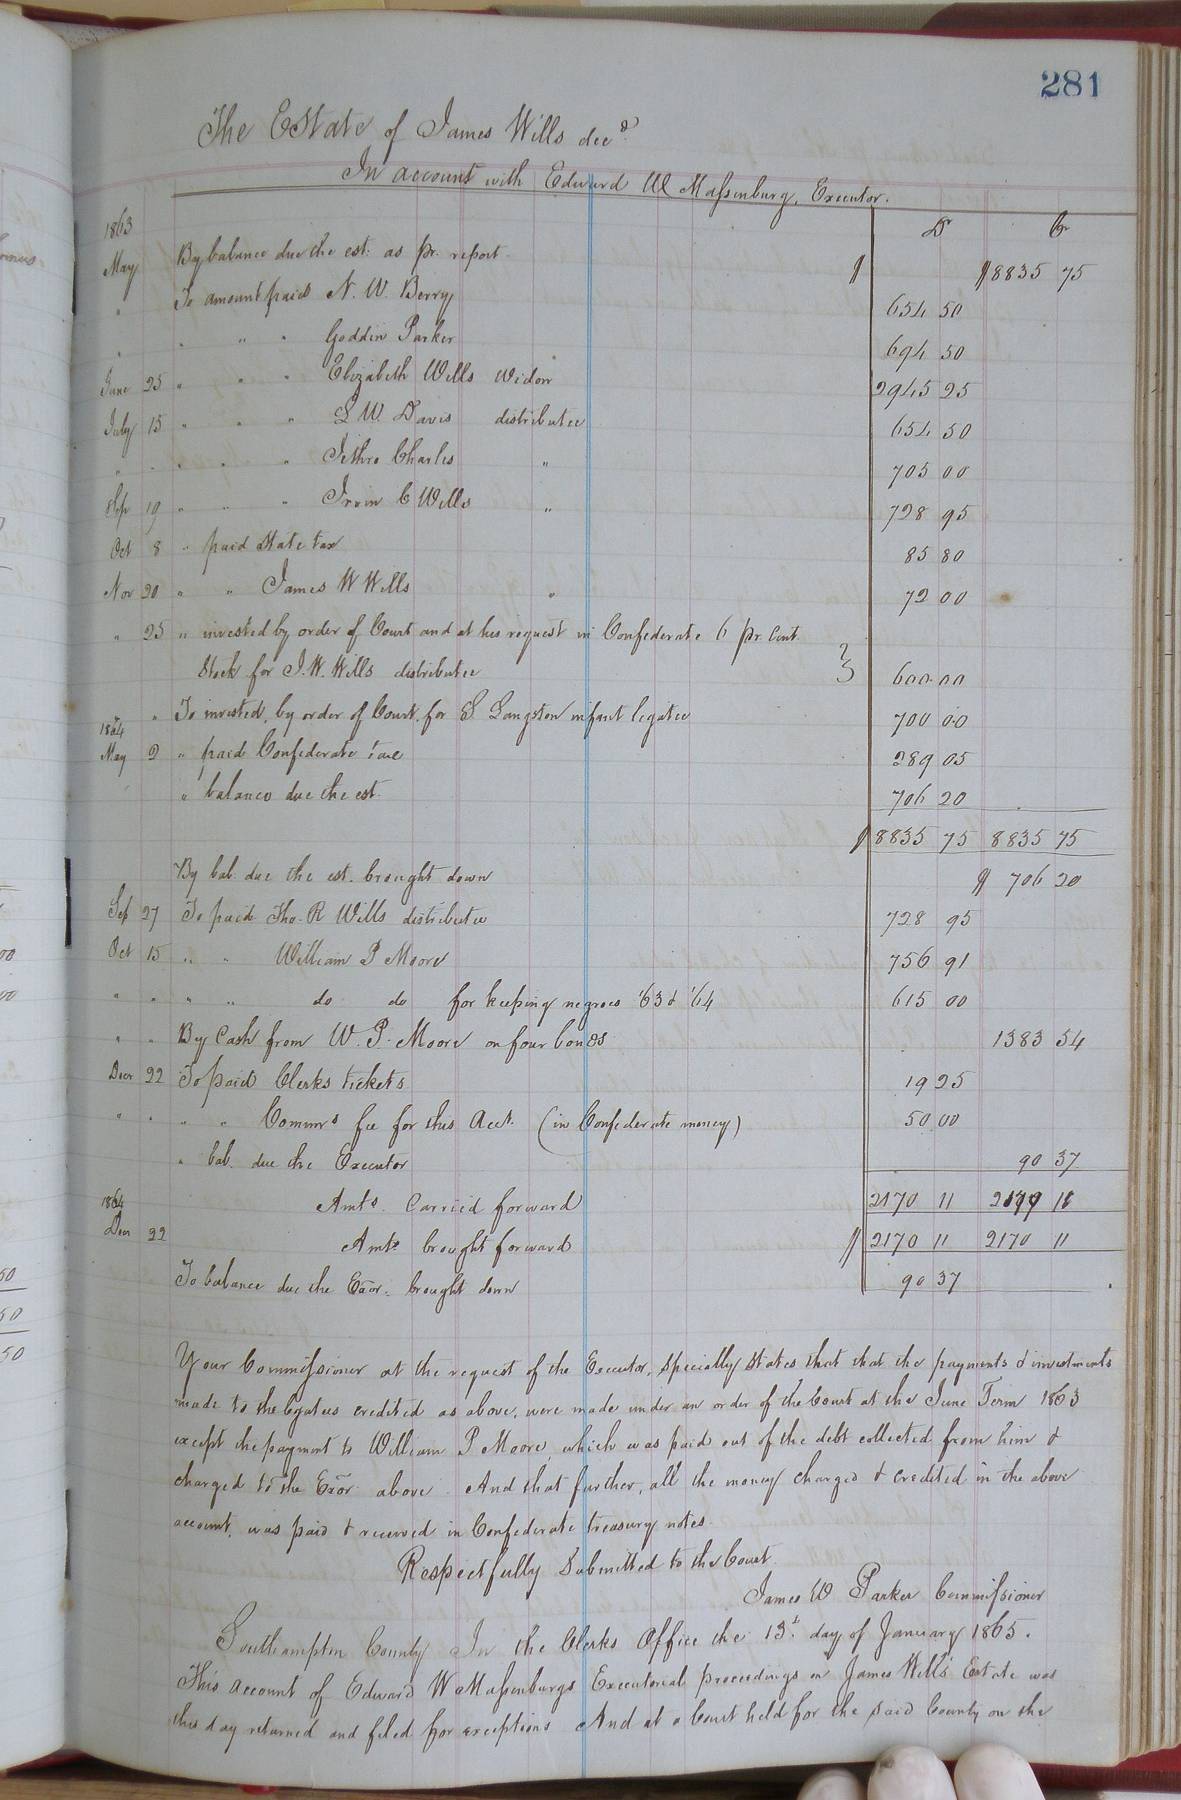 281
The Estate of James Wills decd.
In account with Edward W Massenburg, Executor.
1863 Dr Cr
May By balance due the est. as pr. report $ $8835 75
" To amount paid N. W. Berry 654 50
" " " " Goddin Parker 694 50
June 25 " " " Elizabeth Wills Widow 2945 25
July 15 " " " S W. Davis distributee 654 50
" " " " " Jethro Charles " 705 00
Sep 19 " " " Irvin C Wills " 728 95
Oct 8 " paid State tax 85 80
Nov 20 " " James W Wills " 72 00
" 25 " invested by order of Court and at his request in Confederate 6 pr. Cent
Stock for J. W. Wills distributee 600 00
" " To invested, by order of Court, for S. Langston infant legatee 700 00
1864
May 2 " paid Confederate tax 289 05
" balance due the est. 706 20
$ 8835 75 8835 75
By bal. due the est. brought down $ 706 20
Sep 27 To paid Tho. R Wills distributee 728 95
Oct 15 " " William P Moore 756 91
" " " " do do for keeping negroes '63 & '64 615 00
" " By Cash from W. P. Moore on four bonds 1383 54
Decr 22 To paid Clerks tickets 19 25
" " " " Commrs fee for this Acct. (in Confederate money) 50 00
" bal. due the Executor 90 37
Amts. Carried forward 2170 11 2170 11
1864
Decr 22 Amts. brought forward $ 2170 11 2170 11
To balance due the Exor. brought down 90 37
Your Commissioner at the request of the Executor, specially states that that the payments & investments
made to the legatees credited as above, were made under an order of the Court at the June Term 1863
except the payment to William P Moore, which was paid out of the debt collected from him &
charged to the Exor above. And that further, all the money charged & credited in the above
account, was paid & received in Confederate treasury notes.
Respectfully Submitted to the Court.
James W Parker Commissioner
Southampton County In the Clerks Office the 13t. day of January 1865.
This account of Edward W Massenburgs Executorial proceedings on James Wills' Estate was
this day returned and filed for exceptions And at a Court held for the said County on the